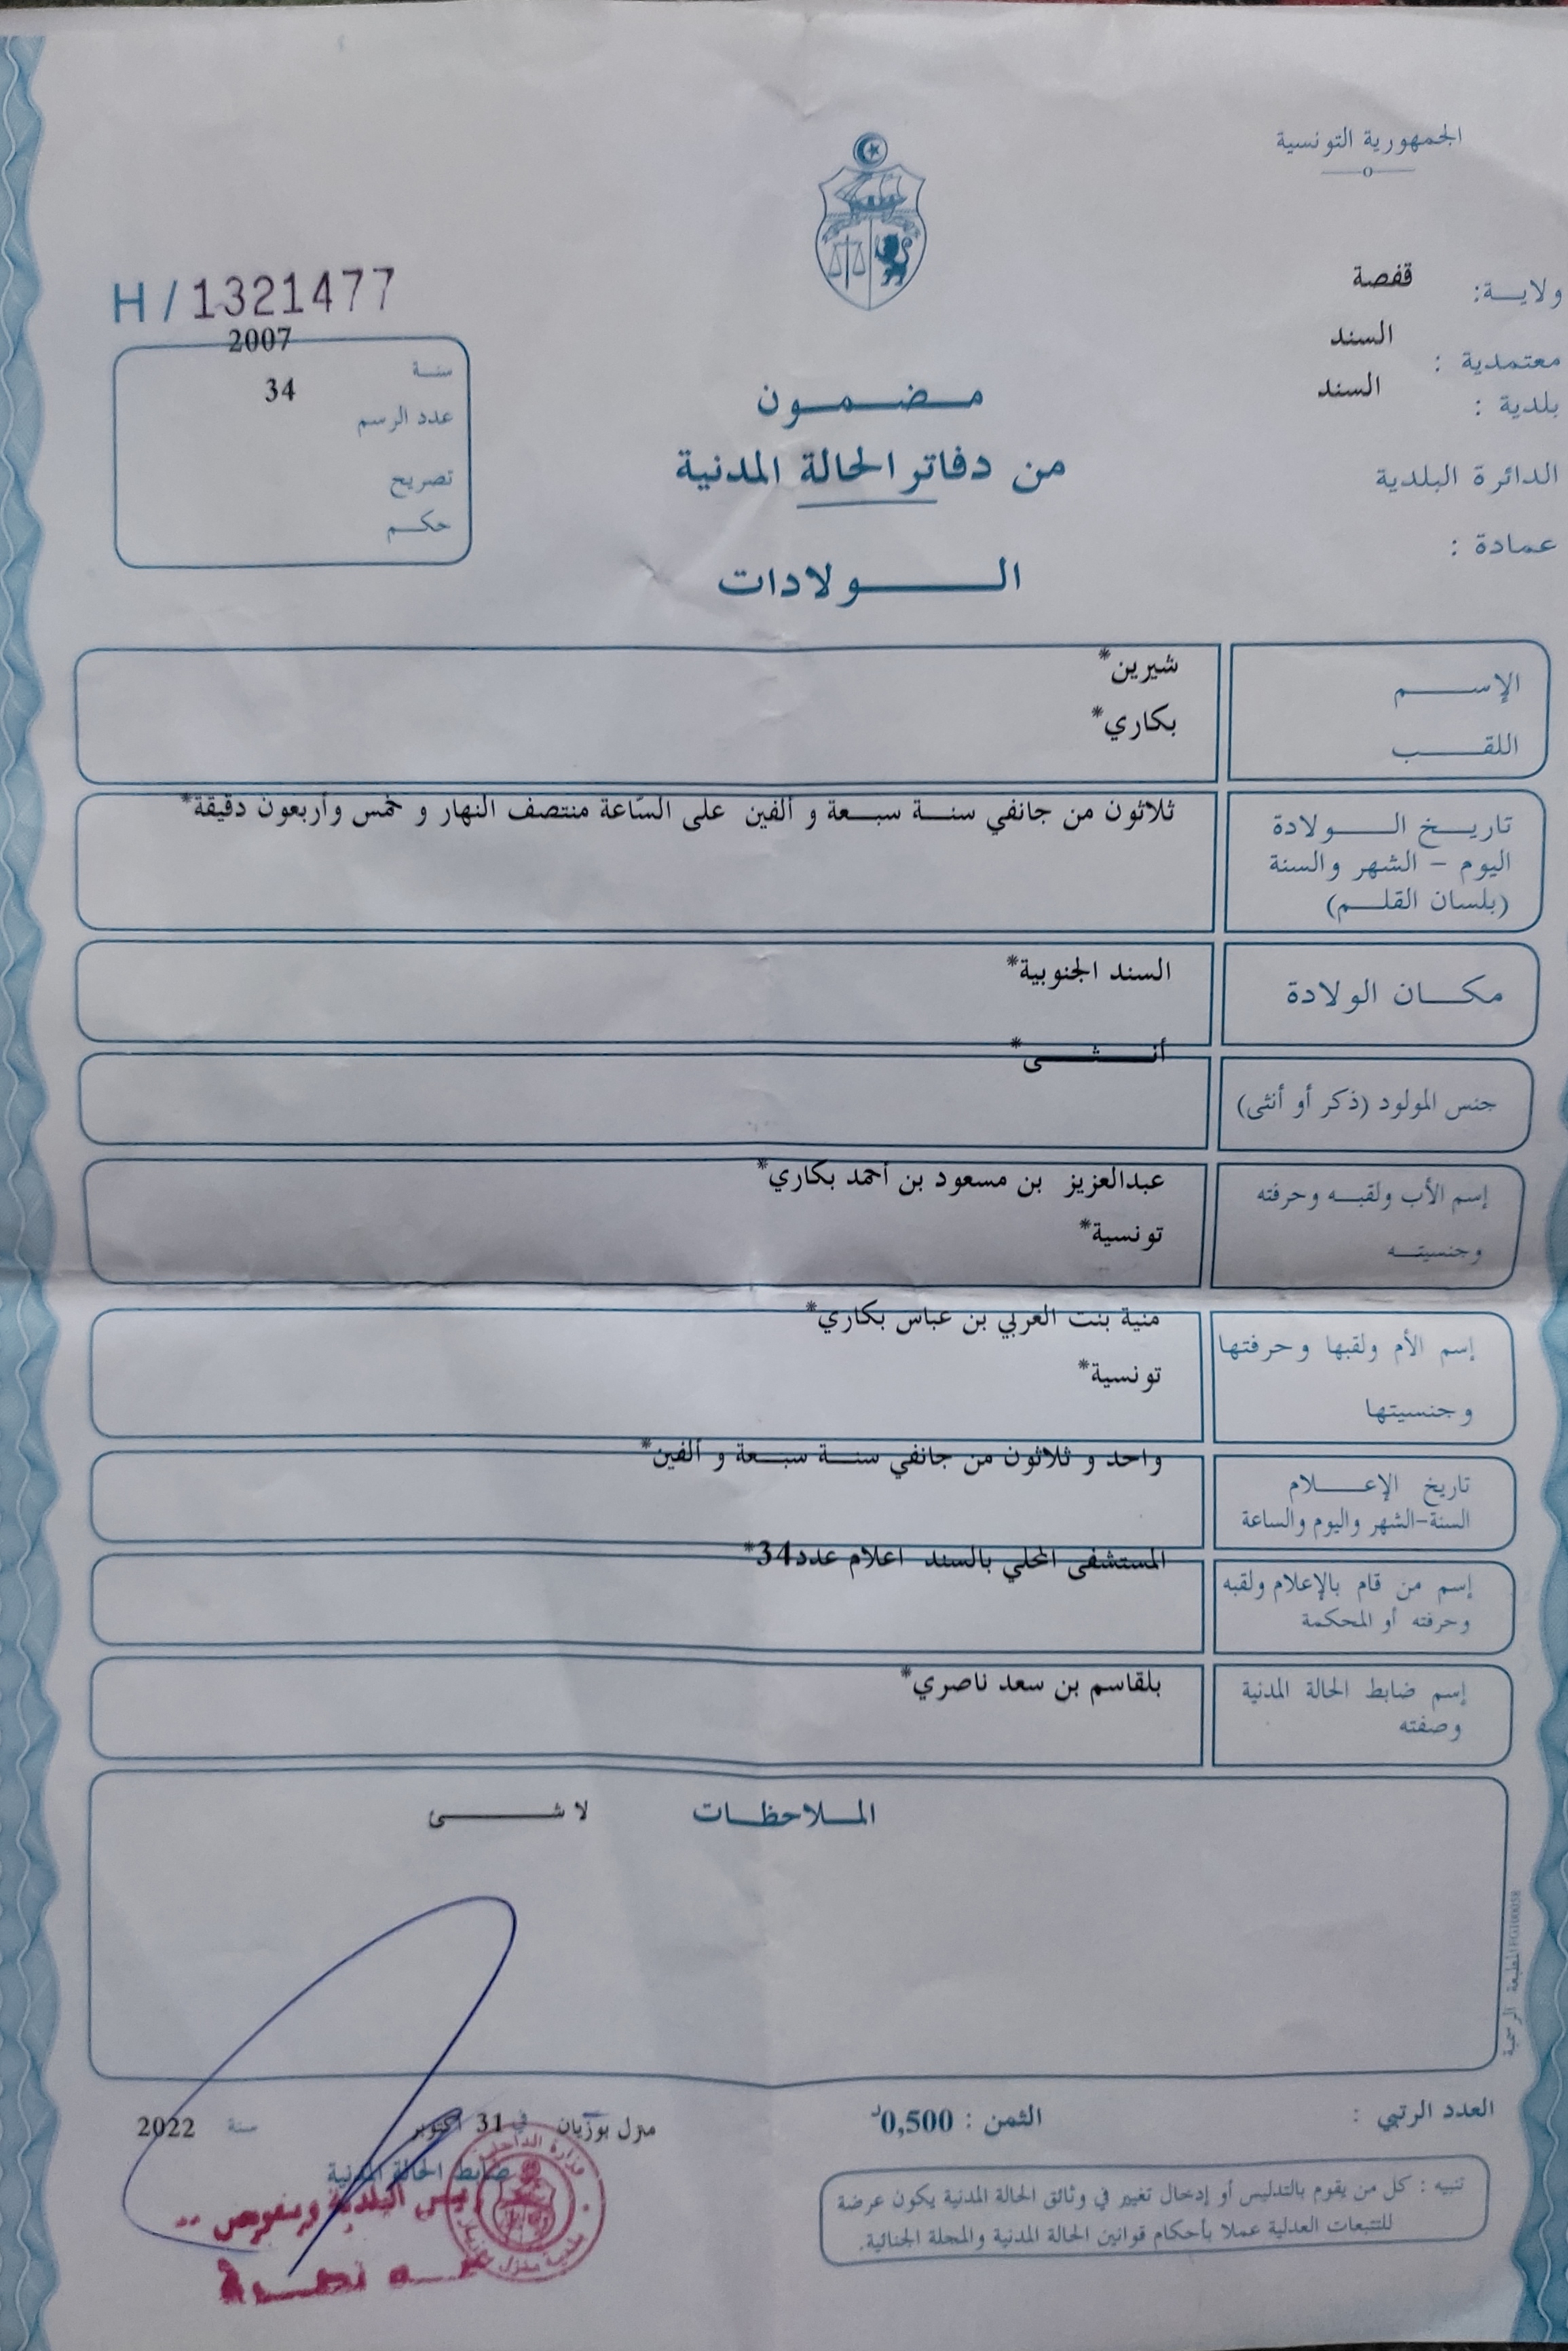 الجمهورية التونسية
ولايـــة: قفصة
معتمدية : السند
بلدية : السند
الدائرة البلدية
عمادة :
H / 1321477
سنـة 2007
عدد الرسم 34
تصريح
حكـم
مـضـمـون
من دفاتر الحالة المدنية
الـــولادات
الإســـم شيرين*
اللقـــب بكاري*
تاريـــخ الـــولادة ثلاثون من جانفي سنة سبعة و ألفين على السّاعة منتصف النهار و خمس وأربعون دقيقة*
اليوم – الشهر والسنة
(بلسان القلـــم)
مكـــان الولادة السند الجنوبية*
جنس المولود (ذكر أو أنثى) أنـــثـــى*
إسم الأب ولقبـه وحرفته عبدالعزيز بن مسعود بن أحمد بكاري*
وجنسيتـــه تونسية*
إسم الأم ولقبها وحرفتها منية بنت العربي بن عباس بكاري*
وجنسيتها تونسية*
تاريخ الإعـــلام واحد و ثلاثون من جانفي سنة سبعة و ألفين*
السنة-الشهر واليوم والساعة
إسم من قام بالإعلام ولقبه المستشفى المحلي بالسند اعلام عدد34*
وحرفته أو المحكمة
إسم ضابط الحالة المدنية بلقاسم بن سعد ناصري*
وصفته
المـلاحظـات لا شـــئ
المطبعة الرسمية
العدد الرتبي :
الثمن : 0,500د
منزل بوزيان في 31 أكتوبر سنة 2022
ضابط الحالة المدنية
رئيس البلدية وبتفويض
وزارة الداخلية
بلدية منزل بوزيان
تنبيه : كل من يقوم بالتدليس أو إدخال تغيير في وثائق الحالة المدنية يكون عرضة
للتتبعات العدلية عملا بأحكام قوانين الحالة المدنية والمجلة الجنائية.